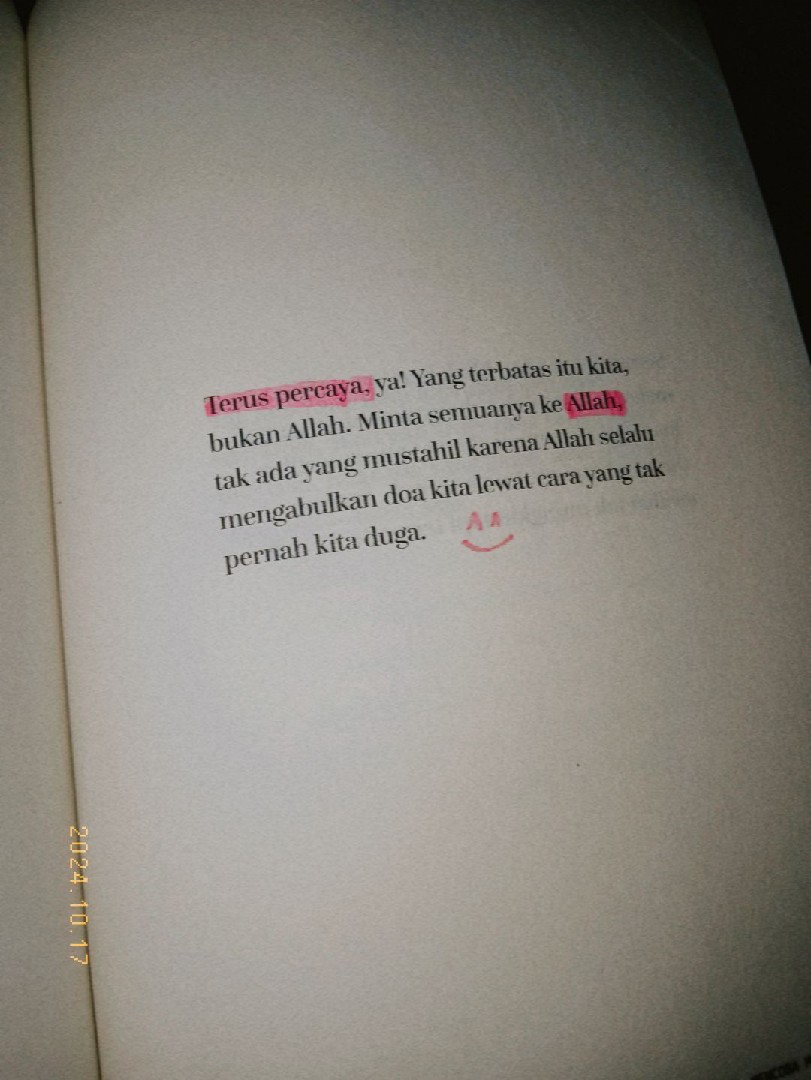 Terus percaya, ya! Yang terbatas itu kita,
bukan Allah. Minta semuanya ke Allah,
tak ada yang mustahil karena Allah selalu
mengabulkan doa kita lewat cara yang tak
pernah kita duga.
2024.10.17